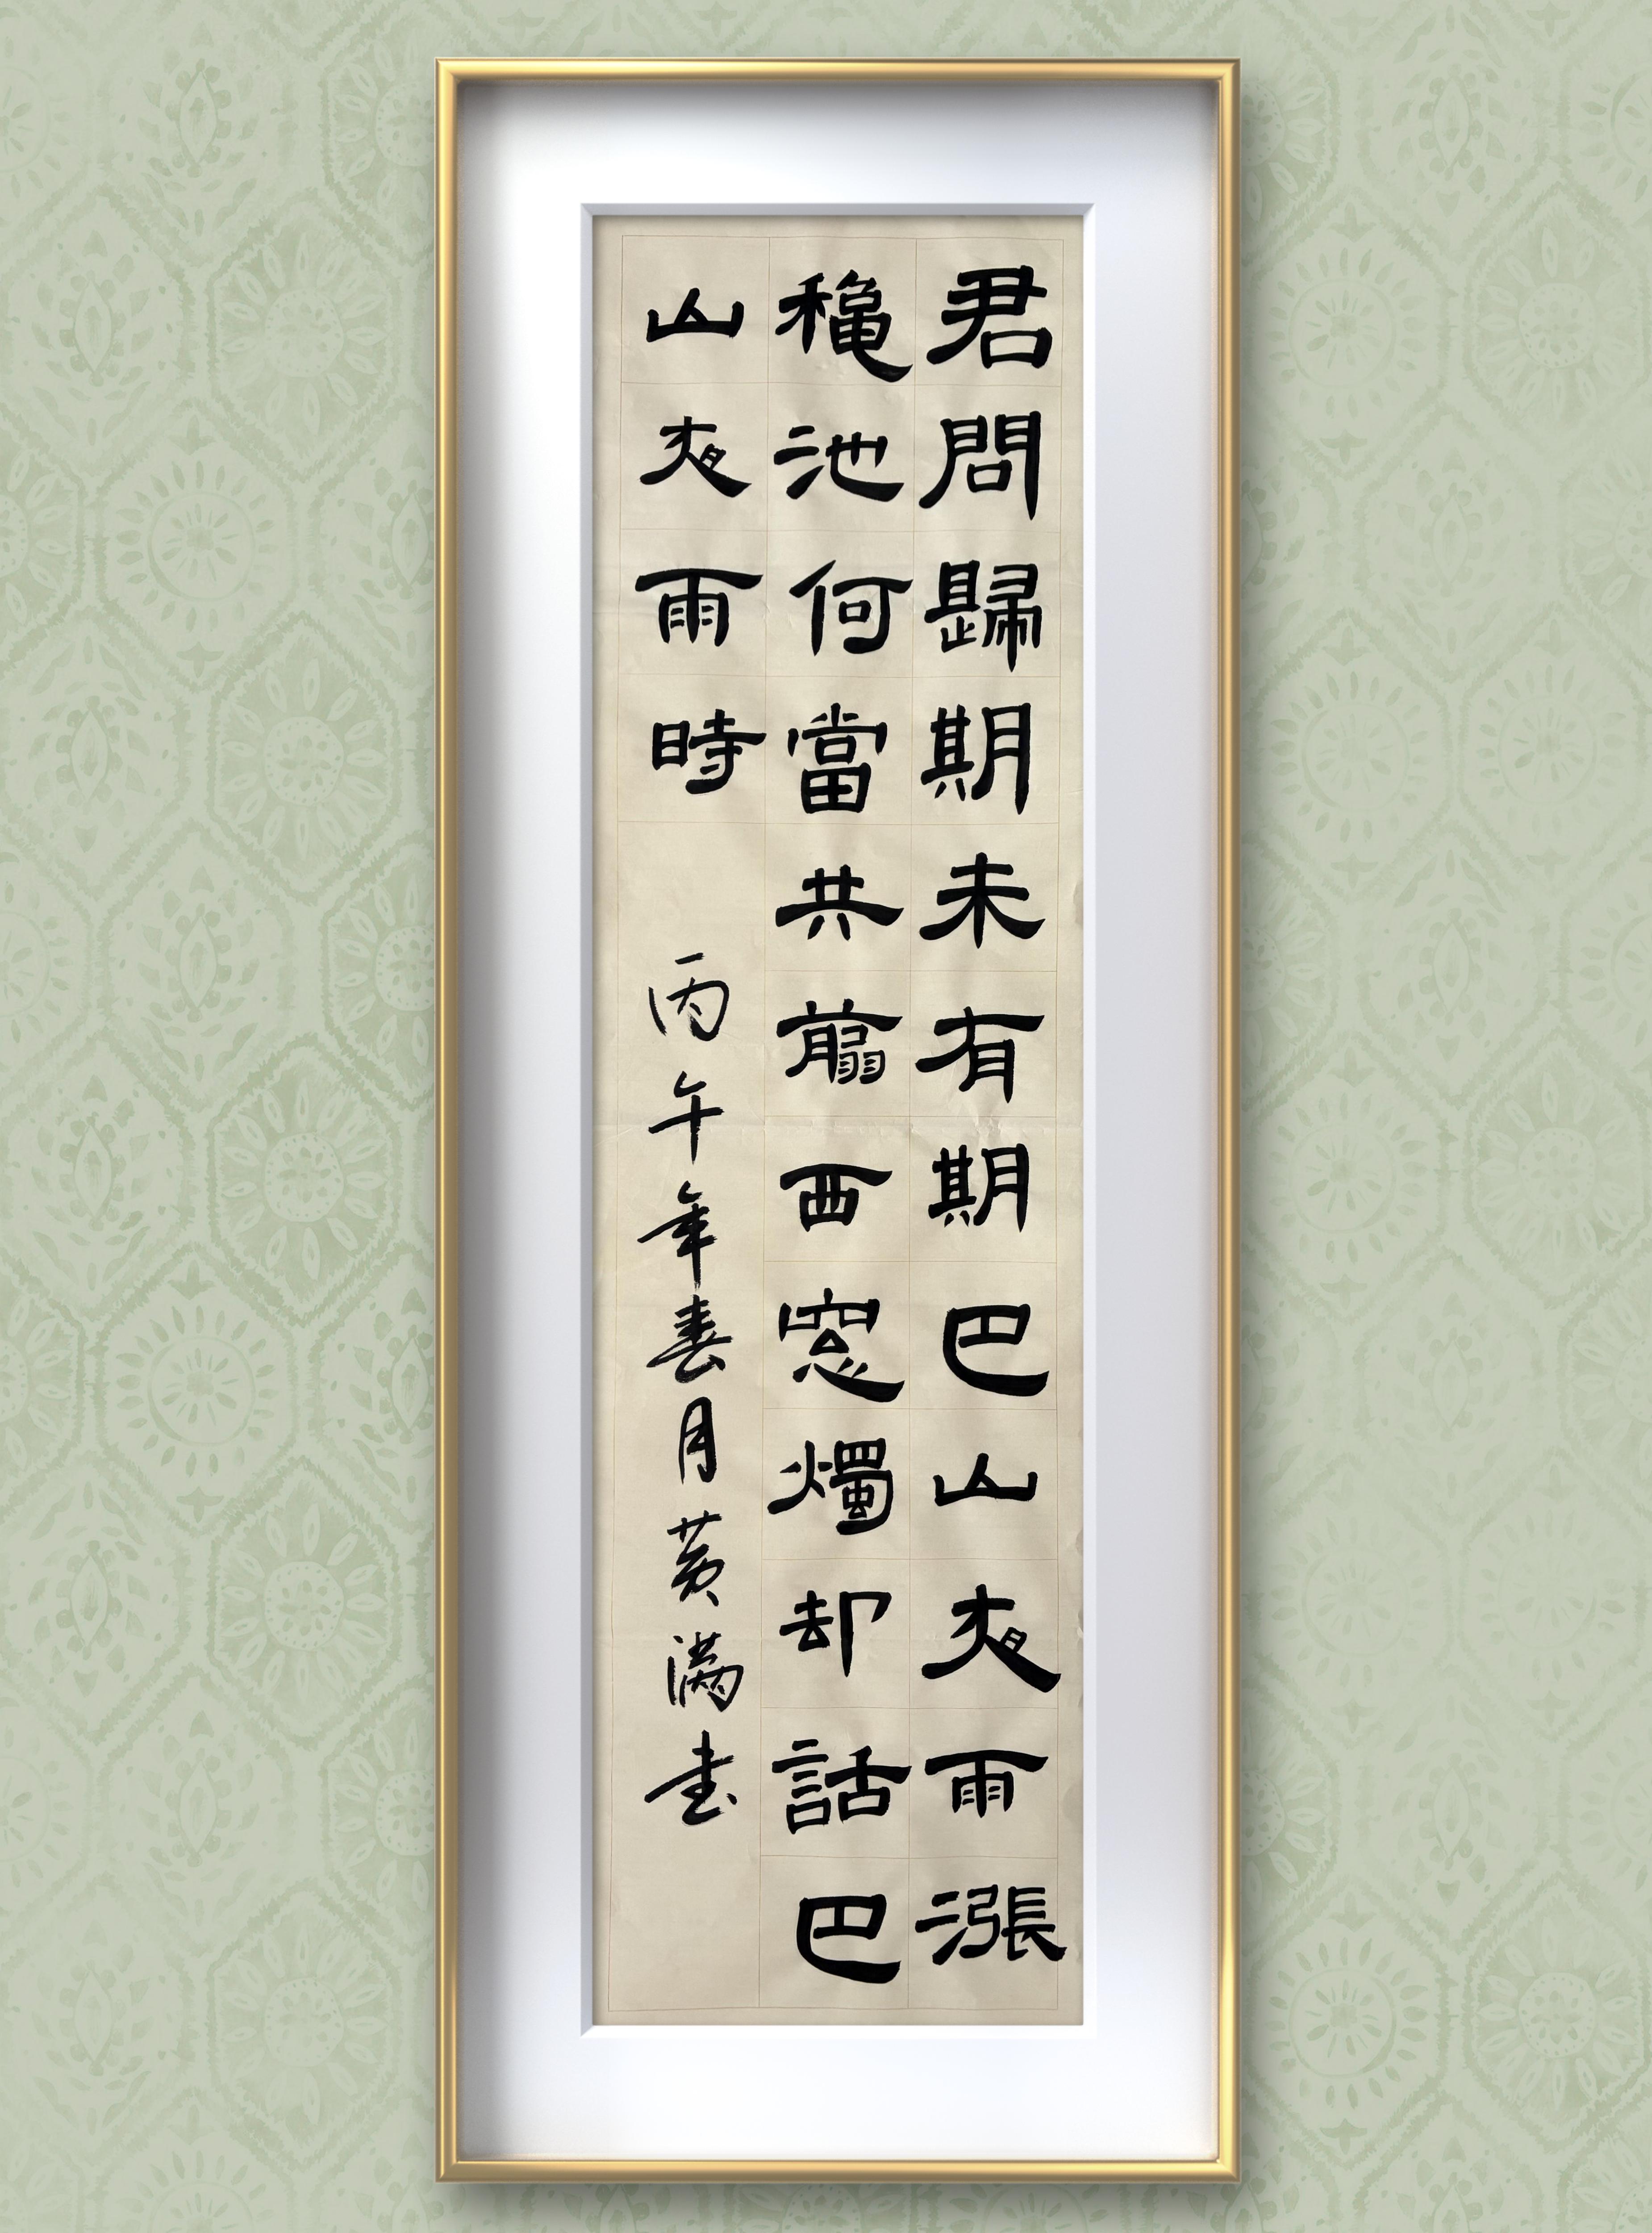 君問歸期未有期巴山夜雨漲
穐池何當共翦西窓燭却話巴
山夜雨時 丙午年春月黄满書